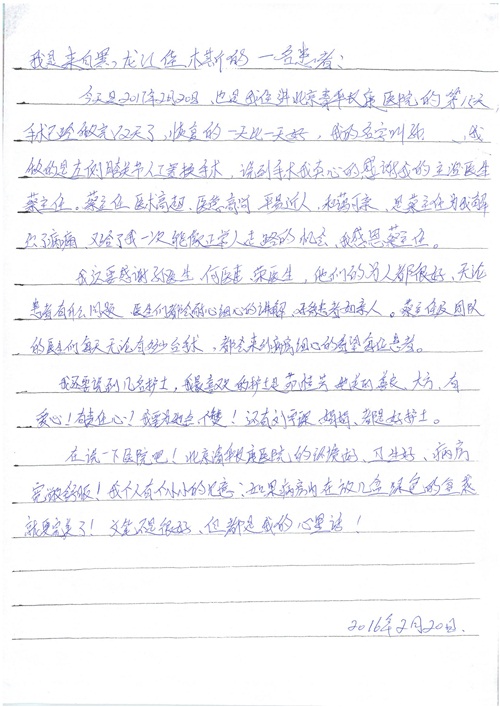 我是来自黑龙江佳木斯的一名患者：
今天是2017年2月20日，也是我住进北京 医院的第15天
手术已经做完12天了，恢复的一天比一天好，我的名字叫 ，我
做的是左侧膝关节人工置换手术，说到手术我真心的感谢我的主治医生
蔡主任。蔡主任医术高超、医德高尚、平易近人、和蔼可亲，是蔡主任为我解
除了病痛，又给了我一次能像正常人走路的机会，我感恩蔡主任。
我还要感谢孙医生、何医生、宋医生，他们的为人都很好，无论
患者有什么问题，医生们都会耐心细心的讲解，对待患者如亲人。蔡主任及团队
的医生们每天无论有多少台手术，都会来到病房细心的看望每位患者。
我还要说到几名护士，我最喜欢的护士是 她是的善良、大方、有
爱心！有责任心！我要为她点个赞！还有刘 、娟娟、都是好护士。
在说一下医院吧！北京 医院的环境好、卫生好、病房
宽敞舒服！我个人有个小小的 ：如果病房内在放几盆绿色的盆景
就更完美了！文笔不是很好、但都是我的心里话！
2016年2月20日.